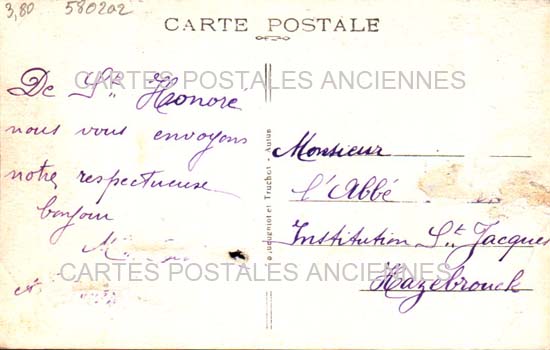 3,80 580202
CARTE POSTALE
CARTES POSTALES ANCIENNES
De St Honoré
nous vous envoyons
notre respectueuse
bonjour
Monsieur
l'Abbé
Institution St. Jacques
Hazebrouck
CARTES POSTALES ANCIENNES
et Truchot - Autun